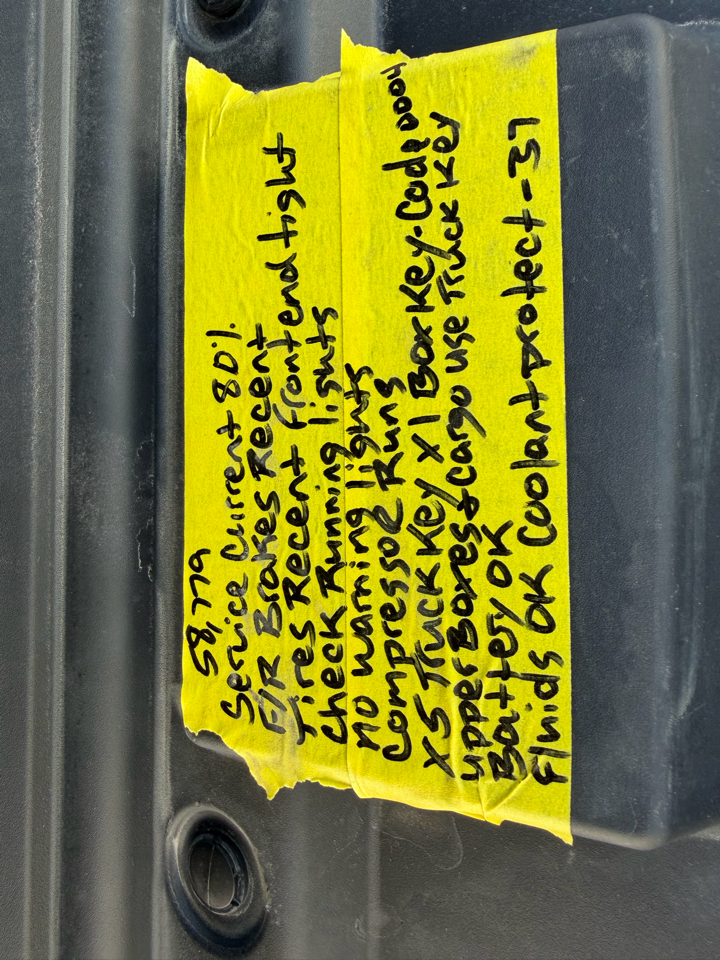 58,779
Service Current 80%
F/R Brakes Recent
Tires Recent front end tight
Check Running lights
NO warning lights
Compressor Runs
X5 Truck Key X1 Box Key-Code 0004
upper Boxes & Cargo use Truck Key
Battery OK
Fluids OK Coolant protect -37